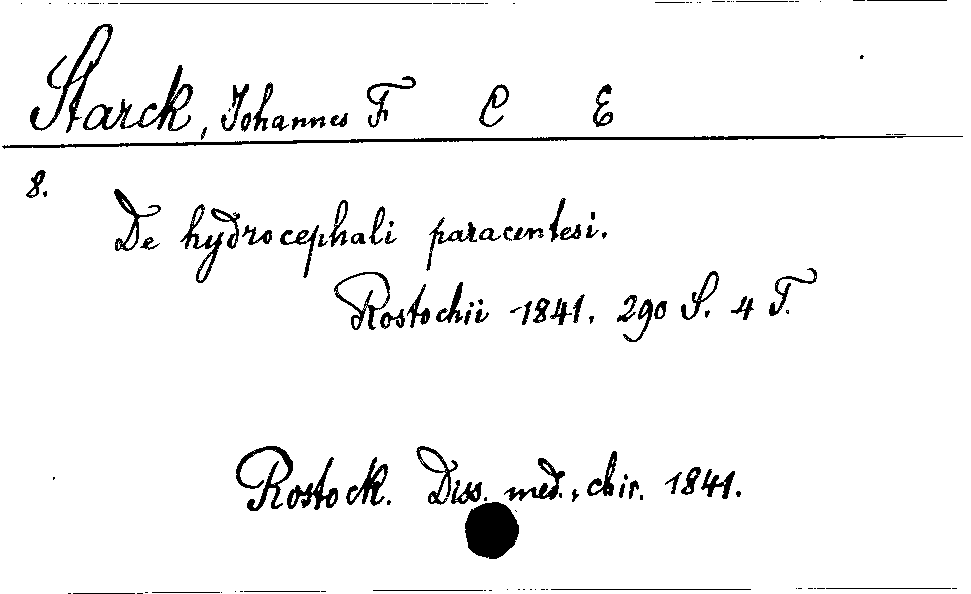 Starck, Johannes F C E
8.
De hydrocephali paracentesi.
Rostochii 1841. 290 S. 4 T.
Rostock. Diss. med., chir. 1841.